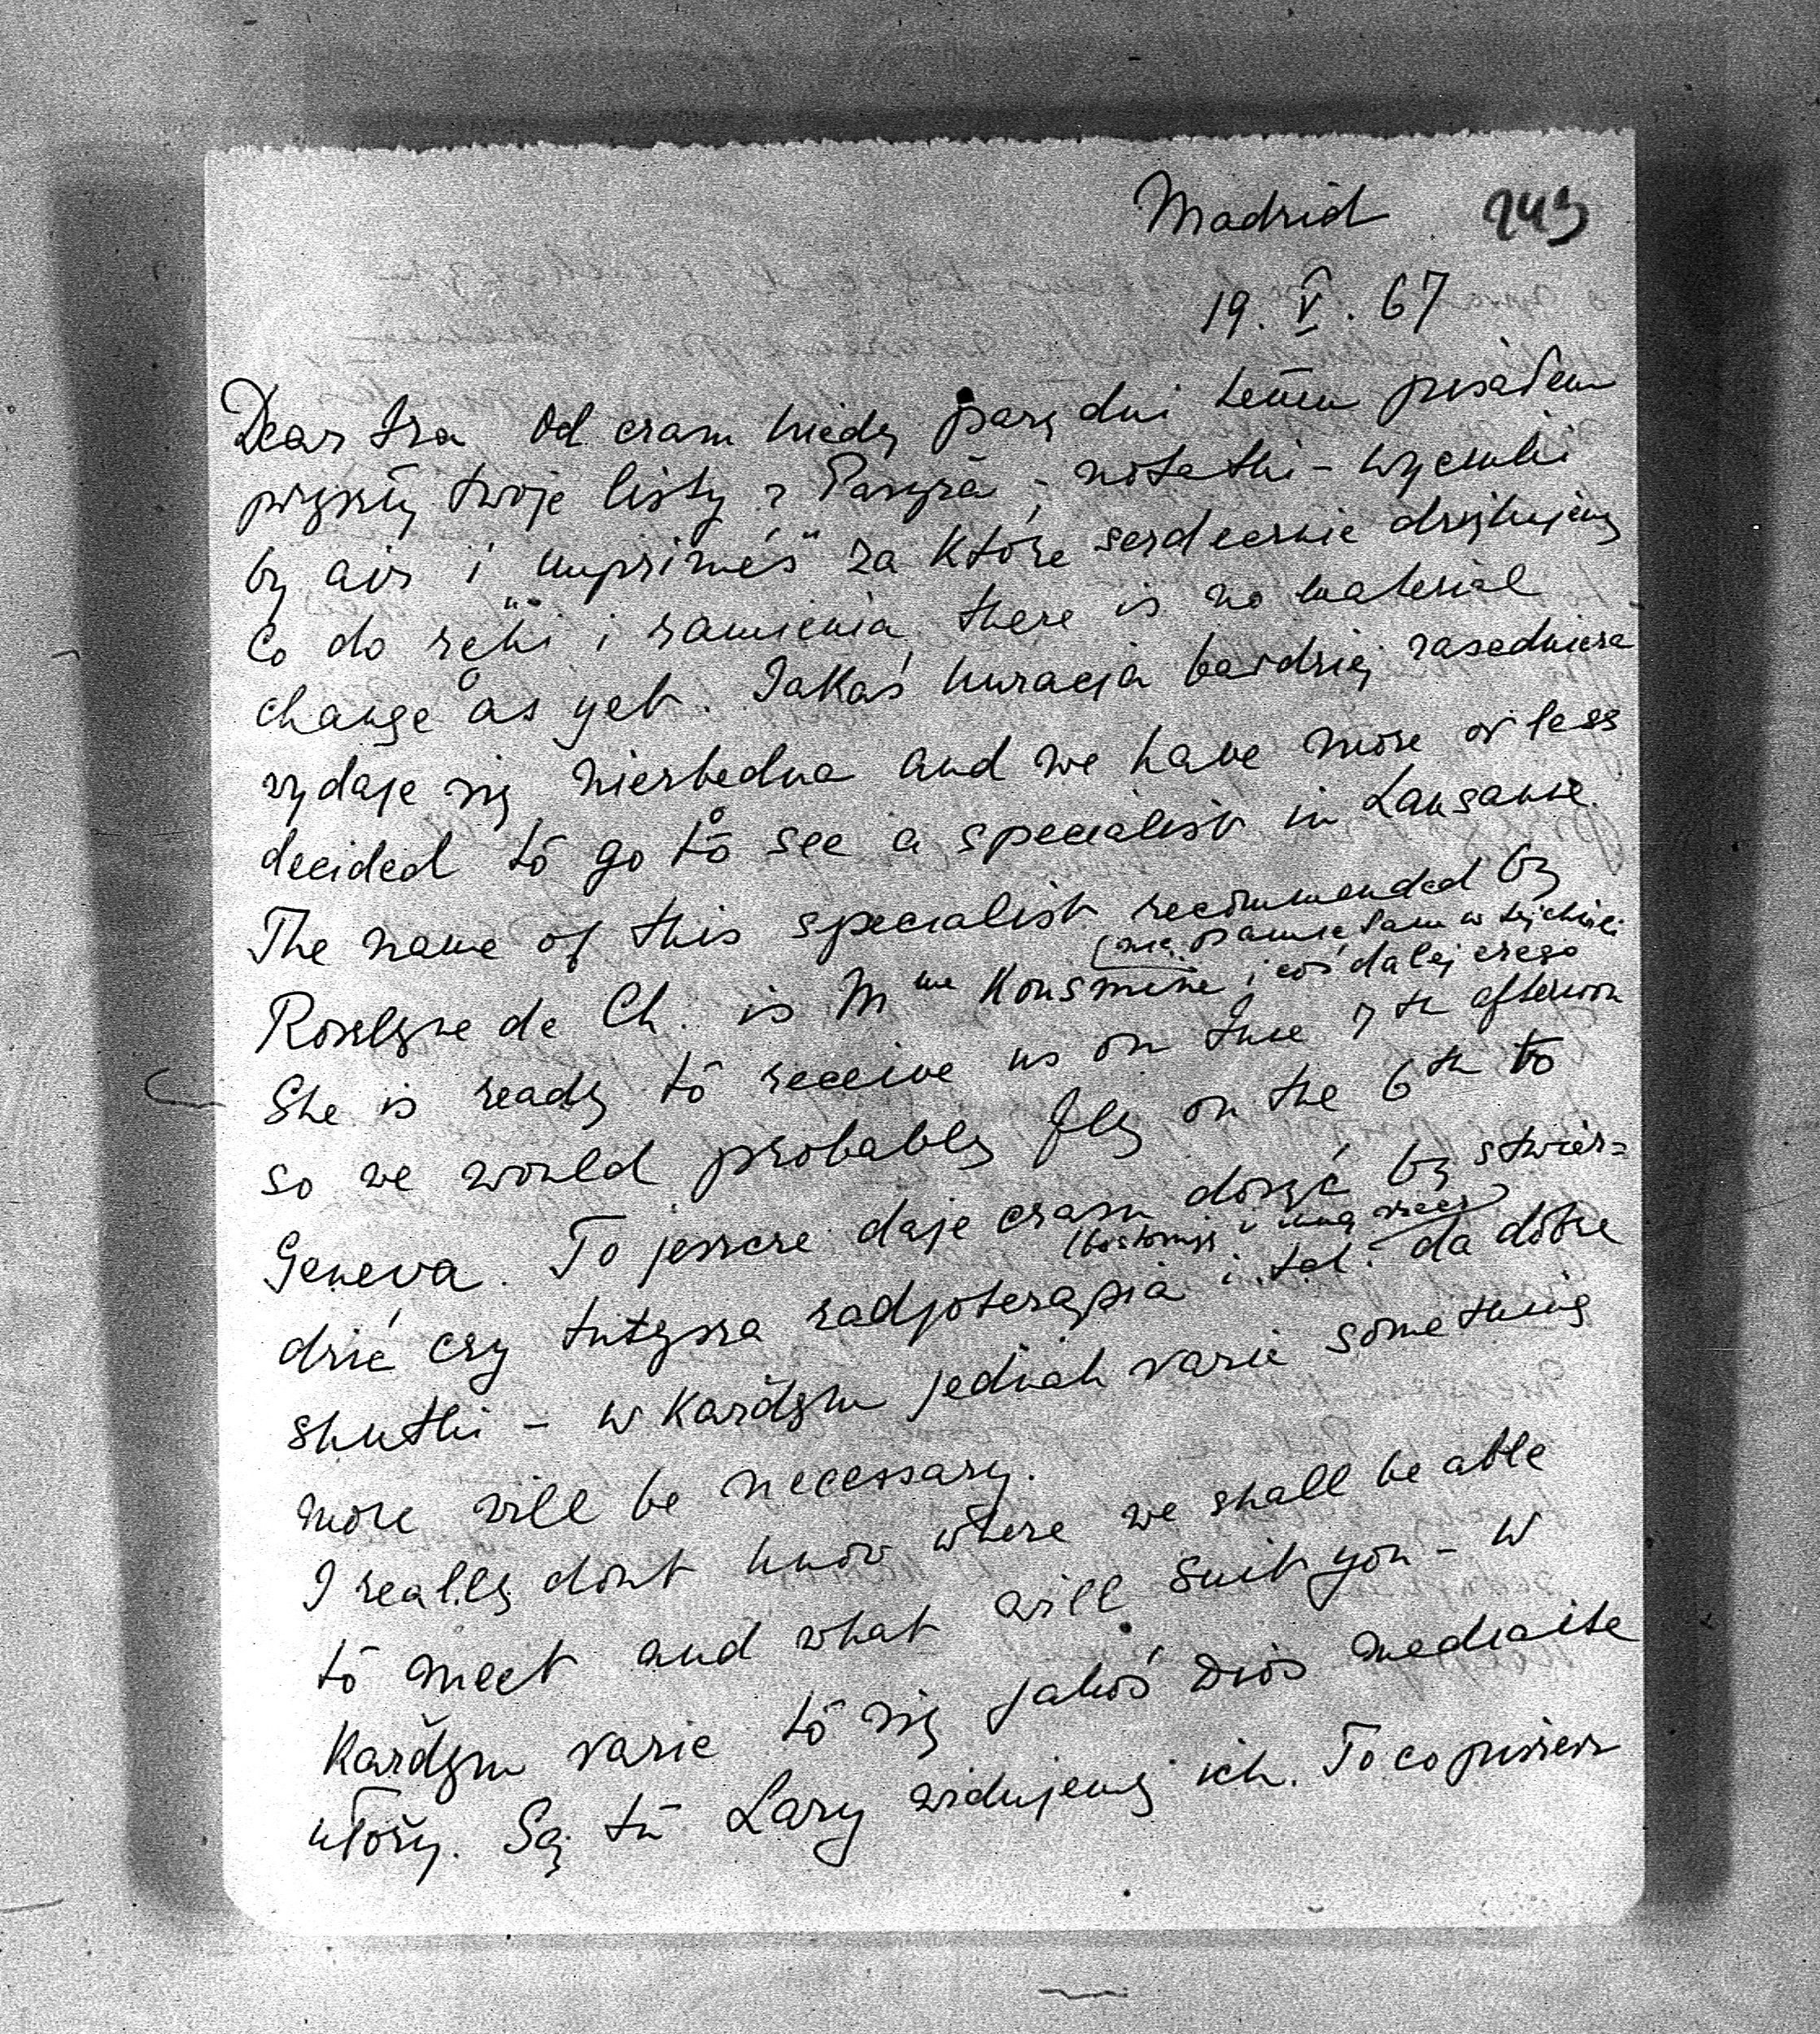 Madrid 243
19. V. 67
Dear Ira Od czasu kiedy parę dni temu pisałem
przyszły twoje listy z Paryża, notatki - wycinki
by air i "imprimés" za które serdecznie dziękujemy
Co do ręki i ramienia, there is no material
change as yet. Jakaś kuracja bardziej zasadnicza
wydaje się niezbędna and we have more or less
decided to go to see a specialist in Lausanne.
The name of this specialist recommended by
(nie w tej chwili
Roselyne de Ch. is Mme Kousmine i coś dalej czego
She is ready to receive us on June 7th afternoon
so we would probably fly on the 6th to
Geneva. To jeszcze daje czasu dosyć by stwier=
i inną
dzić czy tutejsza radjoterapia i t.d. da dobre
skutki - w każdym jednak razie something
more will be necessary.
I really dont know where we shall be able
to meet and what will suit you - w
każdym razie to się jakoś Dios mediante
ułoży. Są tu Lary widujemy ich. To co piszesz